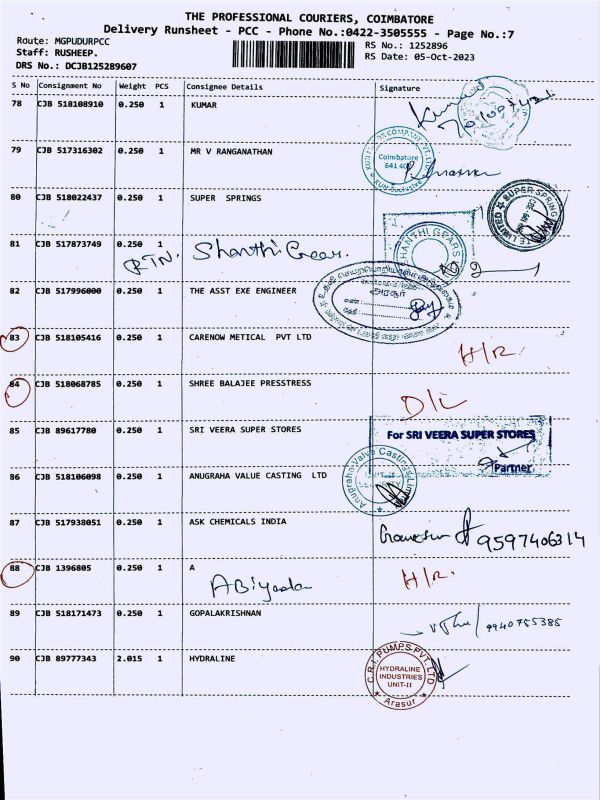 THE PROFESSIONAL COURIERS, COIMBATORE
Delivery Runsheet - PCC - Phone No.:0422-3505555 - Page No.:7
Route: MGPUDURPCC
RS No.: 1252896
Staff: RUSHEEP.
RS Date: 05-Oct-2023
DRS No.: DCJB125289607
S No Consignment No Weight PCS Consignee Details Signature
78 CJB 518108910 0.250 1 KUMAR
Kumar
79 CJB 517316302 0.250 1 MR V RANGANATHAN
Coimbatore
80 CJB 518022437 0.250 1 SUPER SPRINGS
SUPER SPRING
81 CJB 517873749 0.250 1
RTN. Shanthi Gears.
SHANTHI GEARS
82 CJB 517996000 0.250 1 THE ASST EXE ENGINEER
அரசூர்
83 CJB 518105416 0.250 1 CARENOW METICAL PVT LTD
H/R
84 CJB 518068785 0.250 1 SHREE BALAJEE PRESSTRESS
D/L
85 CJB 89617780 0.250 1 SRI VEERA SUPER STORES
For SRI VEERA SUPER STORES
Partner
86 CJB 518106098 0.250 1 ANUGRAHA VALUE CASTING LTD
Anugraha Valve Castings Limited
87 CJB 517938051 0.250 1 ASK CHEMICALS INDIA
9597406314
88 CJB 1396805 0.250 1 A
H/R.
89 CJB 518171473 0.250 1 GOPALAKRISHNAN
9940755385
90 CJB 89777343 2.015 1 HYDRALINE
C.R.I PUMPS PVT. LTD
HYDRALINE
INDUSTRIES
UNIT-II
Arasur